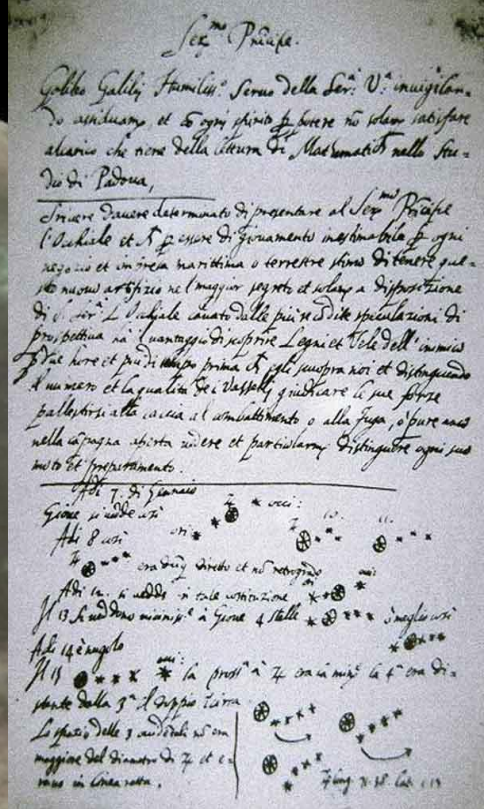 Ser.mo Principe.
Galileo Galilej Humiliss.o Seruo della Ser.a V.a inuigilan-
do assiduam.e, et cõ ogni spirito p potere nõ solam satisfare
alcarico che tiene della lettura di Mathematich nello Stu-
dio di Padoua,
Scriuere dauere determinato di presentare al Ser.mo Principe
l'Occhiale et p essere di giouamento inestimabile p ogni
negozio et impresa marittima o terrestre stimo di tenere que-
sto nuouo artifizio nel maggior segreto et solam a disposizione
di S. Ser.a L'Occhiale cauato dalle più recõdite speculazioni di
prospettiua hà il uantaggio di scoprire Legni et Vele dell'inimico
p due hore et più di tempo prima ch egli scuopra noi et distinguendo
il numero et la qualità de i Vasselli giudicare le sue forze
pallestirsi alla caccia al combattimento o alla fuga, ò pure anco
nella cãpagna aperta uedere et particolarm distinguere ogni suo
moto et preparamento.
Adi 7. di Gennaio
Gioue si uedde così occi:
Adi 8 così ori:
era diretto et nõ retrogrado
Adi 12. si uedde in tale costituzione
Il 13 si ueddono à Gioue 4 stelle ò meglio così
Adi 14 è nugolo
Il 15 la pross.a à era la min.e la 4.a era di-
stante dalla 3.a il doppio
Lo spazio delle 3 nõ era
maggiore del diametro di et e-
rano in linea retta.
long. 71.38 Lat. 1.13